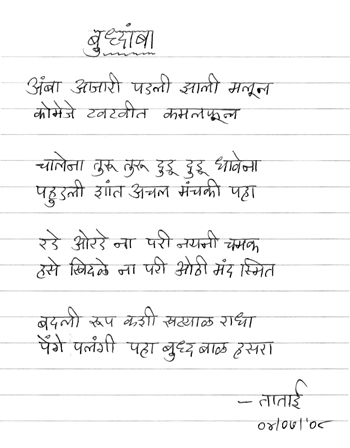 बुध्दांबा
अंबा आजारी पडली झाली मलूल
कोमेजे टवटवीत कमलफूल
चालेना तुरू तुरू दुडू दुडू धावेना
पहुडली शांत अचल मंचकी पहा
रडे ओरडे ना परी नयनी चमक
हसे खिदळे ना परी ओठी मंद स्मित
बदली रूप कशी खट्याळ राधा
पेंगे पलंगी पहा बुध्द बाळ हसरा
— ताताई